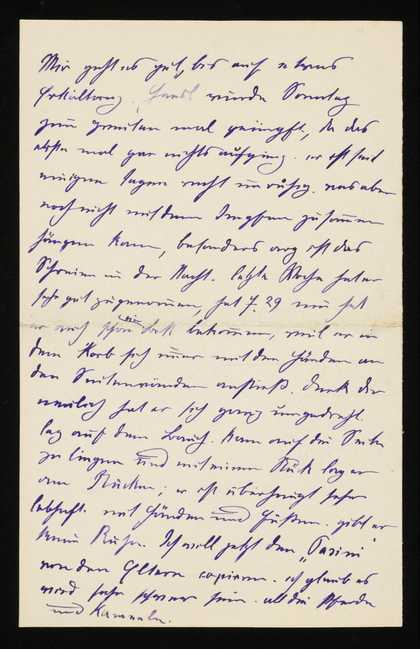 Mir geht es gut, bis auf etwas
Erkältung. Hansl wurde Sonntag
zum zweiten mal geimpft, da das
erste mal gar nichts aufging. er ist seit
einigen Tagen recht unruhig. was aber
noch nicht mit dem Impfen zusammen
hängen kann, besonders arg ist das
Schreien in der Nacht. letzte Woche hat er
sehr gut zugenommen, hat 7.29 nun hat
er auch schon ein Bett bekommen, weil er in
dem Korb sich immer mit den Händen an
den Seitenwänden anstieß. denk dir
neulich hat er sich ganz umgedreht
lag auf dem Bauch. kam auf die Seite
zu liegen und mit einem Ruck lag er
am Rücken; er ist überhaupt sehr
lebhaft. mit Händen und Füßen. gibt er
keine Ruhe. Ich will jetzt den "Pasini"
von den Eltern copieren. ich glaub es
wird sehr schwer sein. all die Pferde
und Kameele.